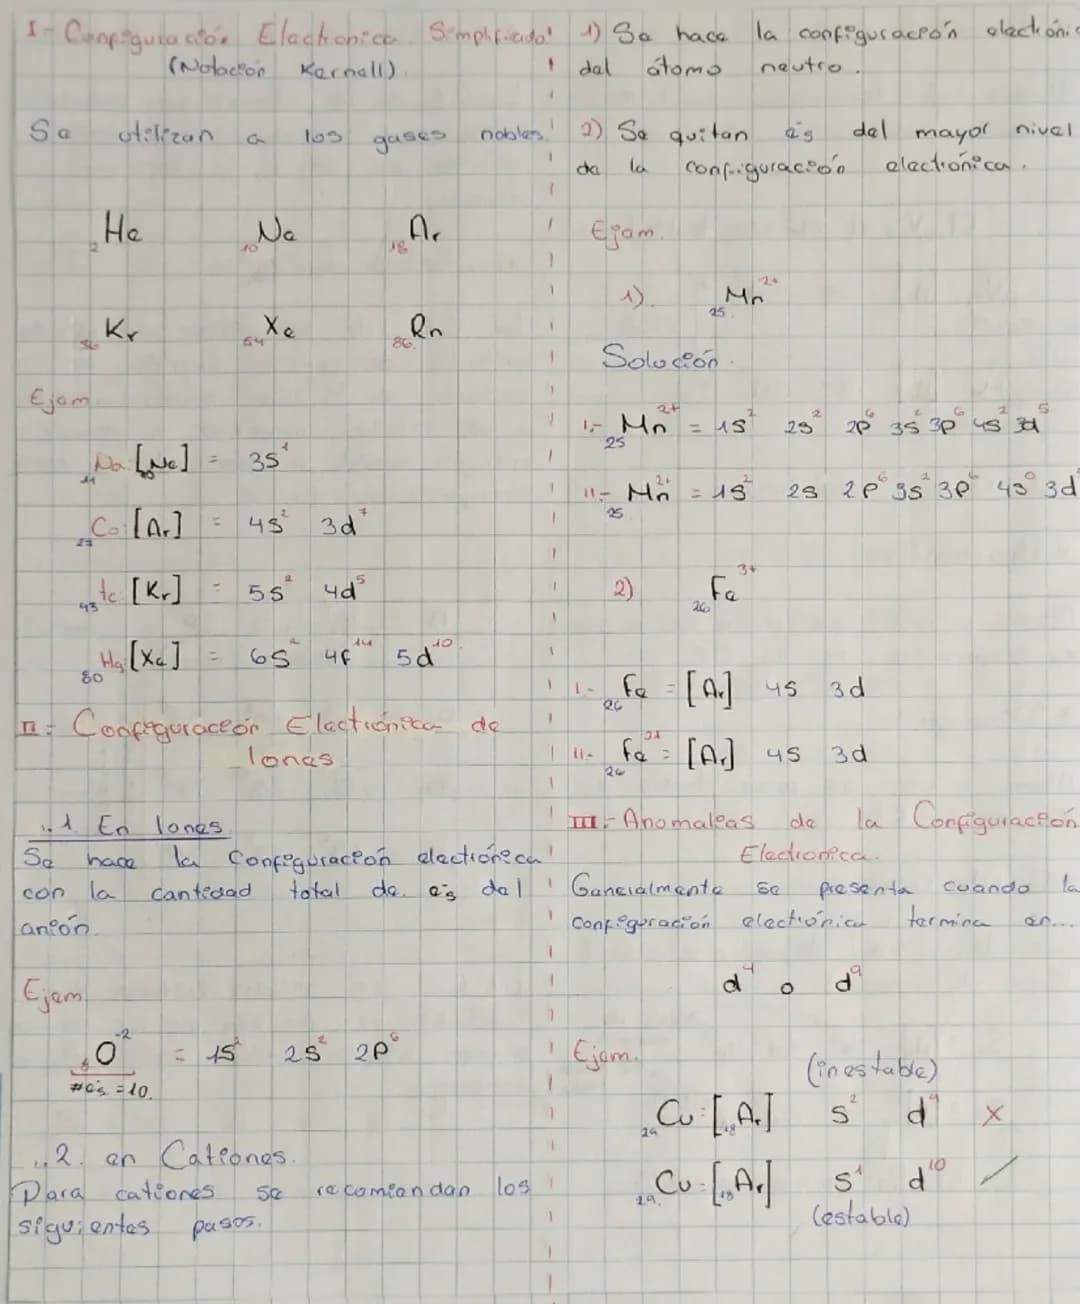 I- Configuración Electronica Simplificada
(Notación Kernell).
Se utilizan a los gases nobles.
₂He ₁₀Ne ₁₈Ar
₃₆Kr ₅₄Xe ₈₆Rn
Ejem.
₁₁Na: [₁₀Ne] = 3s¹
₂₇Co: [Ar] = 4s² 3d⁷
₄₃tc: [Kr] = 5s² 4d⁵
₈₀Hg: [Xe] = 6s² 4f¹⁴ 5d¹⁰
II- Configuración Electrónica de
Iones
..1 En Iones.
Se hace la Configuración electrónica
con la cantidad total de e's del
anión.
Ejem.
₈O⁻² = 1s² 2s² 2p⁶
#e's = 10.
..2. en Cationes.
Para cationes se recomiendan los
siguientes pasos.
1) Se hace la configuración electróni
del átomo neutro.
2) Se quitan e's del mayor nivel
de la configuración electrónica.
Ejem.
1). ₂₅Mn²⁺
Solución.
1.- ₂₅Mn²⁺ = 1s² 2s² 2p⁶ 3s² 3p⁶ 4s² 3d⁵
11.- ₂₅Mn²⁺ = 1s² 2s 2p⁶ 3s² 3p⁶ 4s⁰ 3d
2) ₂₆Fe³⁺
1- ₂₆Fe = [Ar] 4s 3d
11- ₂₆Fe³⁺ = [Ar] 4s 3d
III.- Anomaleas de la Configuración
Electronica.
Generalmente se presenta cuando la
configuración electrónica termina en...
d⁴ o d⁹
Ejem.
(inestable)
₂₉Cu: [₁₈Ar] s² d⁹ x
₂₉Cu: [₁₈Ar] s¹ d¹⁰ /
(estable)